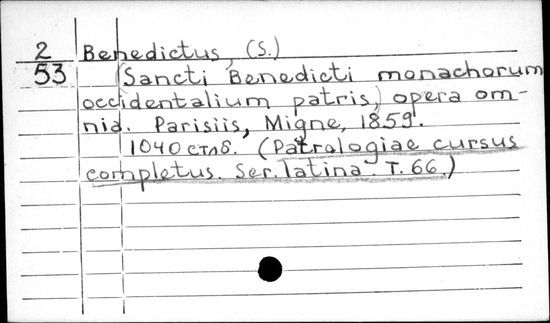 2
53
Benedictus, (S.)
(Sancti Benedicti monachorum
occidentalium patris) opera om-
nia. Parisiis, Migne, 1859.
1040 стлб. (Patralogiae cursus
completus. Ser. latina. T. 66.)